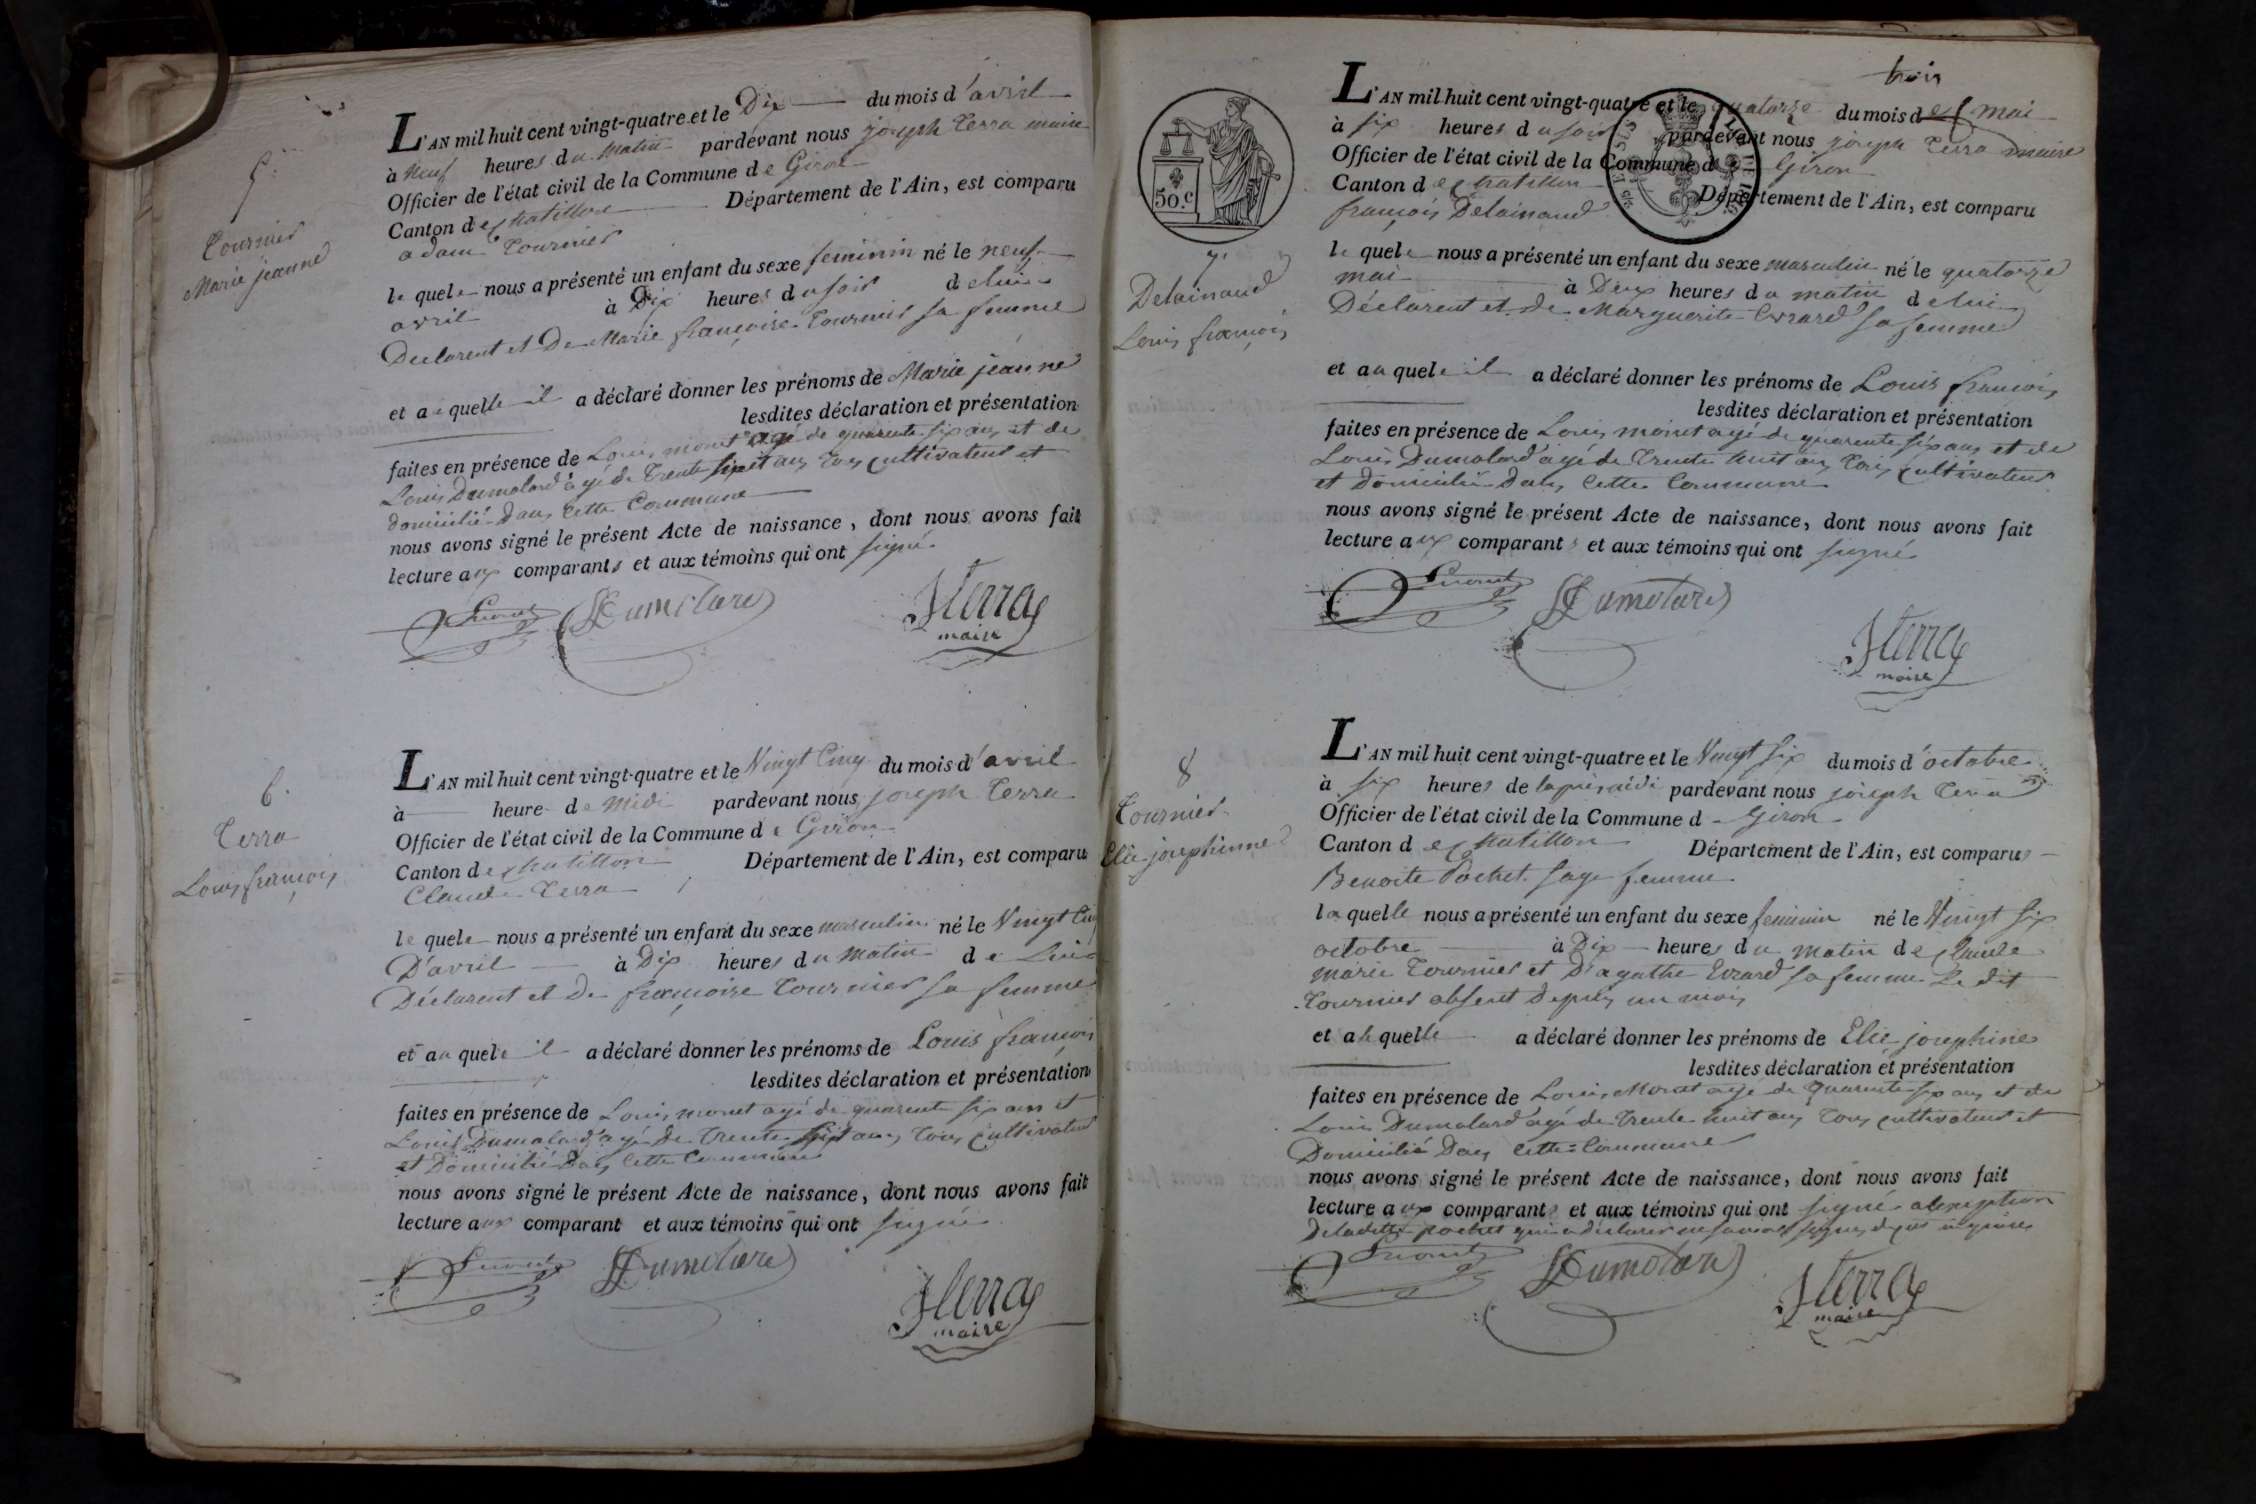 5.
Tournier
Marie jeanne
L'AN mil huit cent vingt-quatre et le Dix du mois d'avril
à Neuf heures du matin pardevant nous joseph Terra maire
Officier de l'état civil de la Commune de Giron
Canton de chatillon Département de l'Ain, est comparu
adam Tournier
le quel nous a présenté un enfant du sexe feminin né le neuf
avril à Dix heures du soir de lui
Declarent et De Marie françoise Tournier sa femme
et a quelle il a déclaré donner les prénoms de Marie jeanne
lesdites déclaration et présentation
faites en présence de Louis monet agé de quarente six ans et de
Louis Dumolard agé de Trente ans Tous cultivateur et
domicilié dans cette Commune
nous avons signé le présent Acte de naissance, dont nous avons fait
lecture aux comparants et aux témoins qui ont signé.
LDumolard
JTerra
maire
6.
Terra
Louis françois
L'AN mil huit cent vingt-quatre et le Vingt Cinq du mois d'avril
à heure de midi pardevant nous joseph Terra
Officier de l'état civil de la Commune de Giron
Canton de chatillon Département de l'Ain, est comparu
Claude Terra
le quel nous a présenté un enfant du sexe masculin né le Vingt Cinq
D'avril à Dix heures du matin de Lui
Déclarent et De françoise Tournier sa femme
et au quel il a déclaré donner les prénoms de Louis françois
lesdites déclaration et présentation
faites en présence de Louis monet agé de quarente six ans et
Louis Dumolard agé De Trente ans Tous cultivateur
et Domicilié Dans cette Commune
nous avons signé le présent Acte de naissance, dont nous avons fait
lecture aux comparant et aux témoins qui ont signé
LDumolard
JTerra
maire
trois
50.c
7.
Delainaud
Louis françois
L'AN mil huit cent vingt-quatre et le quatorze du mois de mai
à six heures du soir pardevant nous joseph Terra maire
Officier de l'état civil de la Commune de Giron
Canton de chatillon Département de l'Ain, est comparu
françois Delainaud
le quel nous a présenté un enfant du sexe masculin né le quatorze
mai à Deux heures du matin de lui
Déclarent et de Marguerite Evrard sa femme
et au quel il a déclaré donner les prénoms de Louis françois
lesdites déclaration et présentation
faites en présence de Louis monet agé de quarente six ans et de
Louis Dumolard agé de Trente huit ans Tous cultivateur
et Domicilié Dans Cette Commune
nous avons signé le présent Acte de naissance, dont nous avons fait
lecture aux comparants et aux témoins qui ont signé
LDumolard
JTerra
maire
8
Tournier
Elie josephinne
L'AN mil huit cent vingt-quatre et le Vingt six du mois d'octobre
à six heures de lapresmidi pardevant nous joseph Terra
Officier de l'état civil de la Commune d Giron
Canton de chatillon Département de l'Ain, est comparu
Benoite Pochet sage femme
la quelle nous a présenté un enfant du sexe feminin né le Vingt six
octobre à Dix heures du matin de claude
marie Tournier et D'agathe Evrard sa femme Le dit
Tournier absent Depuis un mois
et a la quelle a déclaré donner les prénoms de Elie josephine
lesdites déclaration et présentation
faites en présence de Louis Monet agé de quarente six ans et de
Louis Dumolard agé de Trente huit ans Tous cultivateur et
Domicilié Dans cette Commune
nous avons signé le présent Acte de naissance, dont nous avons fait
lecture aux comparants et aux témoins qui ont signé alexeption
Deladitte pochet qui a déclarer ne savoir signer
LDumolard
JTerra
maire